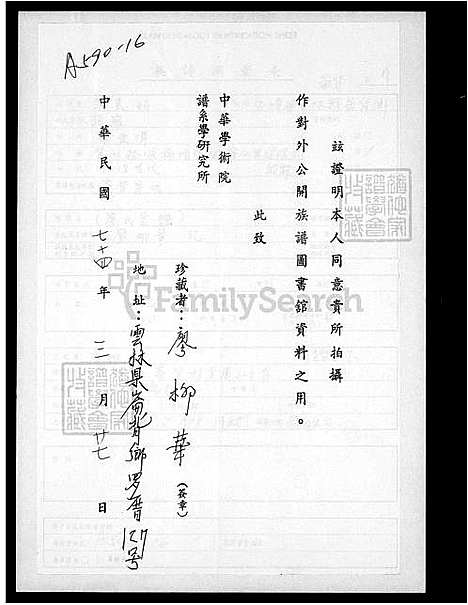 A590-16
茲證明本人同意貴所拍攝
作對外公開族譜圖書舘資料之用。
此致
中華學術院
譜系學研究所
珍藏者：廖柳華（簽章）
地址：雲林県崙背鄉罗厝127号
中華民國七十四年三月廿七日
FamilySearch